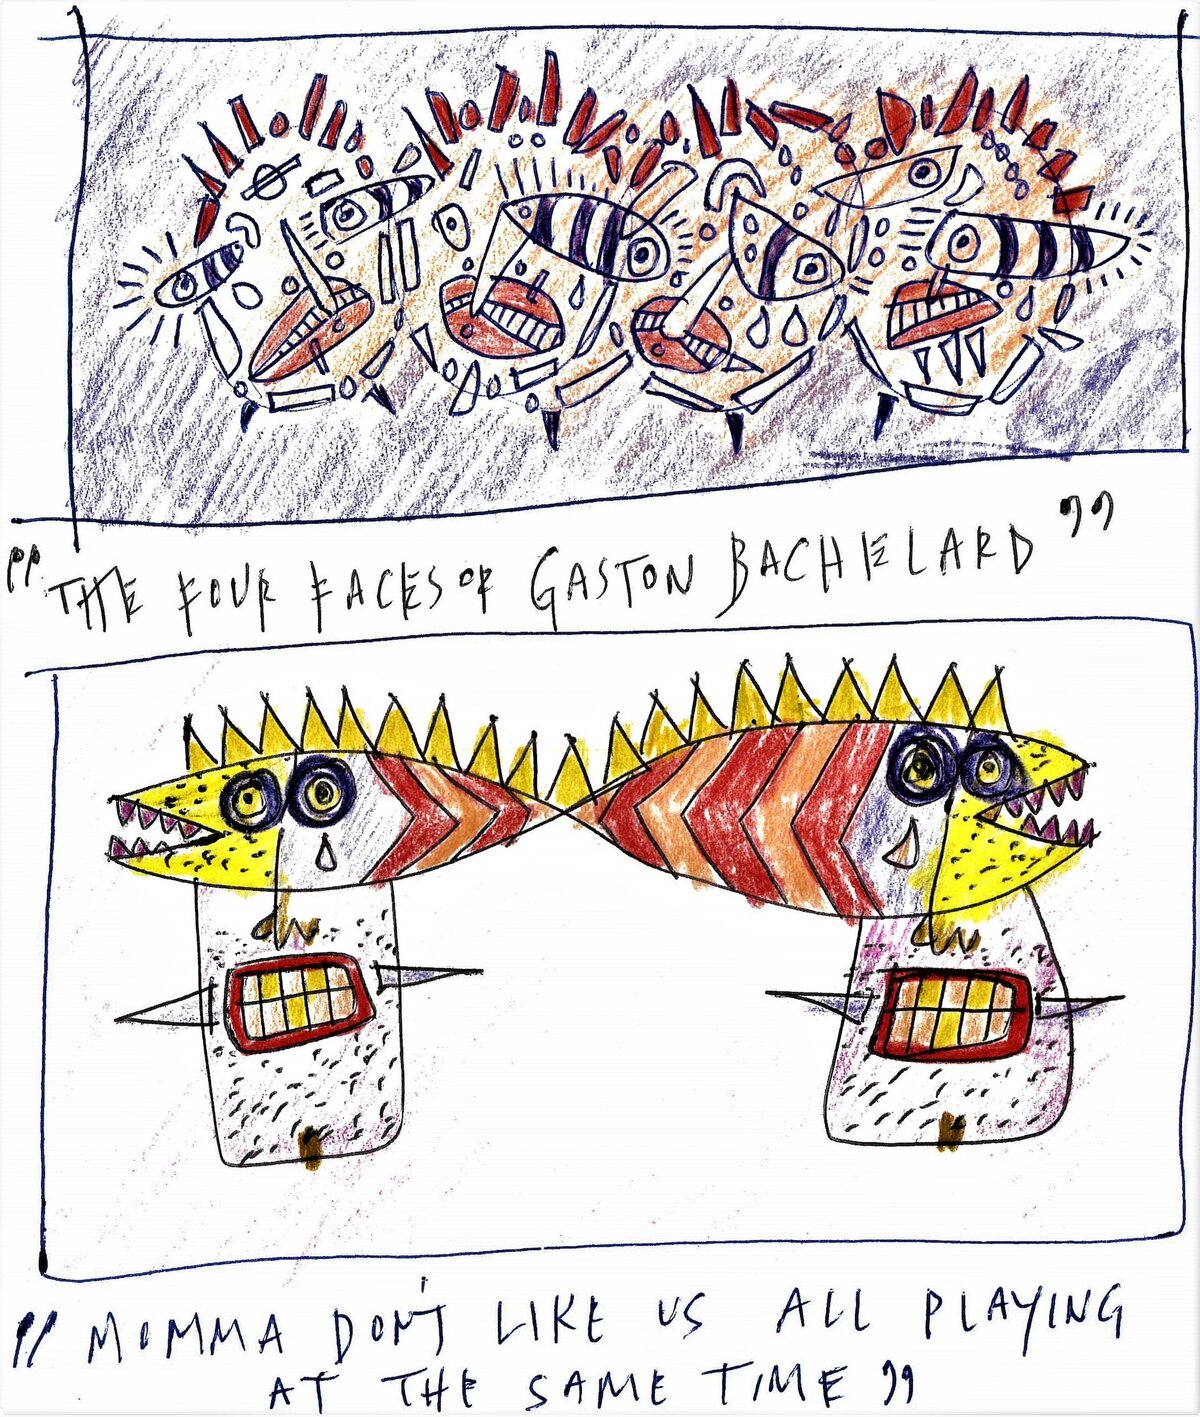 "THE FOUR FACES OF GASTON BACHELARD"
"MOMMA DON'T LIKE US ALL PLAYING
AT THE SAME TIME"